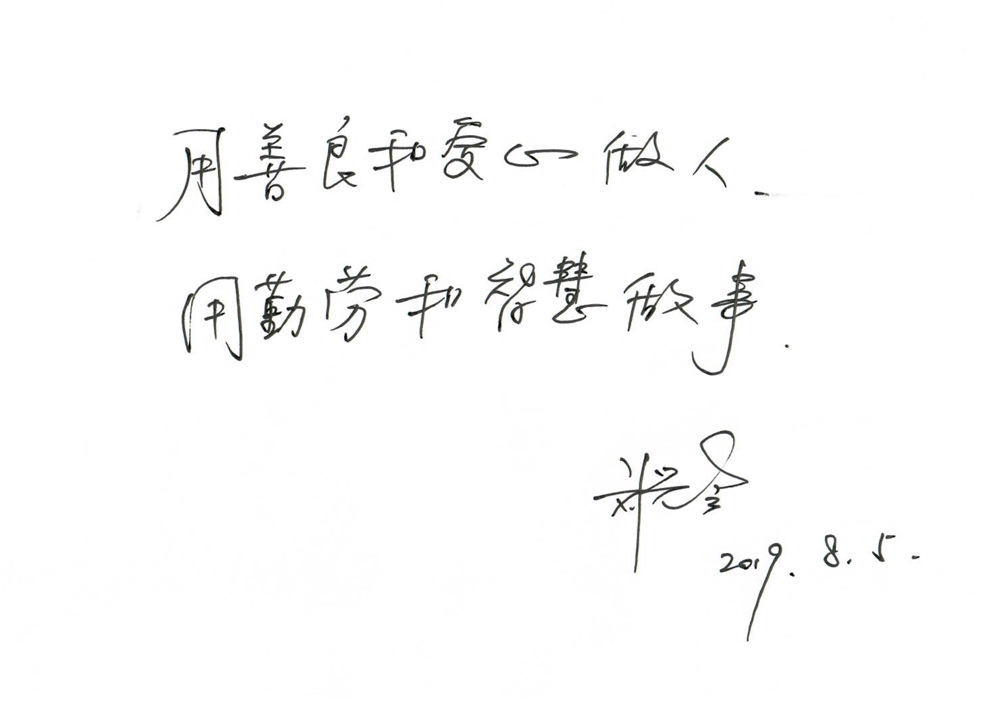 用善良和爱心做人.
用勤劳和智慧做事.
2019.8.5.